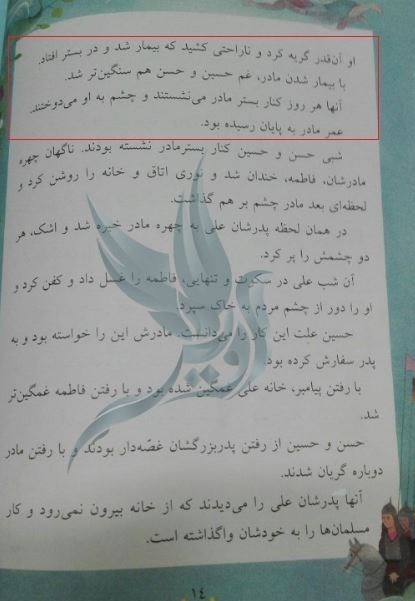 او آن‌قدر گریه کرد و ناراحتی کشید که بیمار شد و در بستر افتاد.
با بیمار شدن مادر، غم حسین و حسن هم سنگین‌تر شد.
آنها هر روز کنار بستر مادر می‌نشستند و چشم به او می‌دوختند.
عمر مادر به پایان رسیده بود.
شبی حسن و حسین کنار بسترمادر نشسته بودند. ناگهان چهره
مادرشان، فاطمه، خندان شد و نوری اتاق و خانه را روشن کرد و
لحظه‌ای بعد مادر چشم بر هم گذاشت.
در همان لحظه پدرشان علی به چهره مادر خیره شد و اشک، هر
دو چشمش را پر کرد.
آن شب علی در سکوت و تنهایی، فاطمه را غسل داد و کفن کرد و
او را دور از چشم مردم به خاک سپرد.
حسین علت این کار را می‌دانست. مادرش این را خواسته بود و به
پدر سفارش کرده بود.
با رفتن پیامبر، خانه علی غمگین شده بود و با رفتن فاطمه غمگین‌تر
شد.
حسن و حسین از رفتن پدربزرگشان غصّه‌دار بودند و با رفتن مادر
دوباره گریان شدند.
آنها پدرشان علی را می‌دیدند که از خانه بیرون نمی‌رود و کار
مسلمان‌ها را به خودشان واگذاشته است.
۱۴